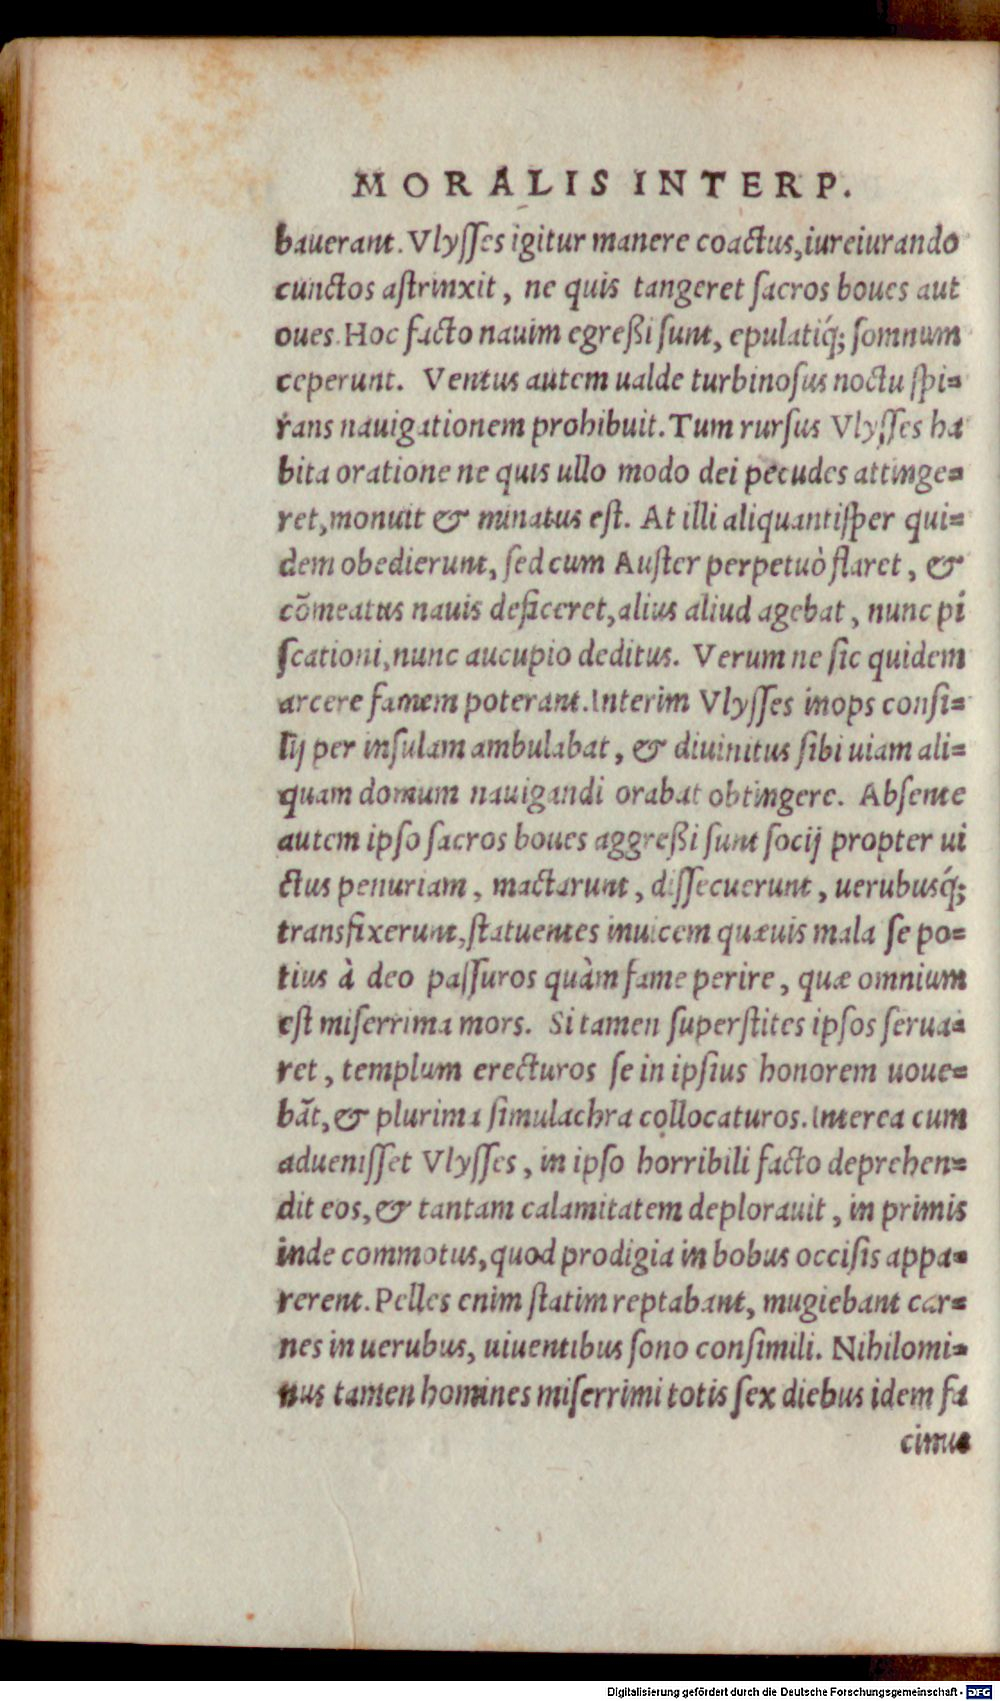 MORALIS INTERP.
bauerant. Vlyſſes igitur manere coactus, iureiurando
cunctos aſtrinxit, ne quis tangeret ſacros boues aut
oues. Hoc facto nauim egreßi ſunt, epulatiq́; ſomnum
ceperunt. Ventus autem ualde turbinoſus noctu ſpi-
rans nauigationem prohibuit. Tum rurſus Vlyſſes ha
bita oratione ne quis ullo modo dei pecudes attinge-
ret, monuit & minatus eſt. At illi aliquantiſper qui-
dem obedierunt, ſed cum Auſter perpetuò flaret, &
cõmeatus nauis deficeret, alius aliud agebat, nunc pi
ſcationi, nunc aucupio deditus. Verum ne ſic quidem
arcere famem poterant. Interim Vlyſſes inops conſi-
lij per inſulam ambulabat, & diuinitus ſibi uiam ali-
quam domum nauigandi orabat obtingere. Abſente
autem ipſo ſacros boues aggreßi ſunt ſocij propter ui
ctus penuriam, mactarunt, diſſecuerunt, uerubusq́;
transfixerunt, ſtatuentes inuicem quæuis mala ſe po-
tius à deo paſſuros quàm fame perire, quæ omnium
eſt miſerrima mors. Si tamen ſuperſtites ipſos ſerua-
ret, templum erecturos ſe in ipſius honorem uoue-
bãt, & plurima ſimulachra collocaturos. Interea cum
adueniſſet Vlyſſes, in ipſo horribili facto deprehen-
dit eos, & tantam calamitatem deplorauit, in primis
inde commotus, quod prodigia in bobus occiſis appa-
rerent. Pelles enim ſtatim reptabant, mugiebant car-
nes in uerubus, uiuentibus ſono conſimili. Nihilomi-
nus tamen homines miſerrimi totis ſex diebus idem fa
cimus
Digitalisierung gefördert durch die Deutsche Forschungsgemeinschaft - DFG